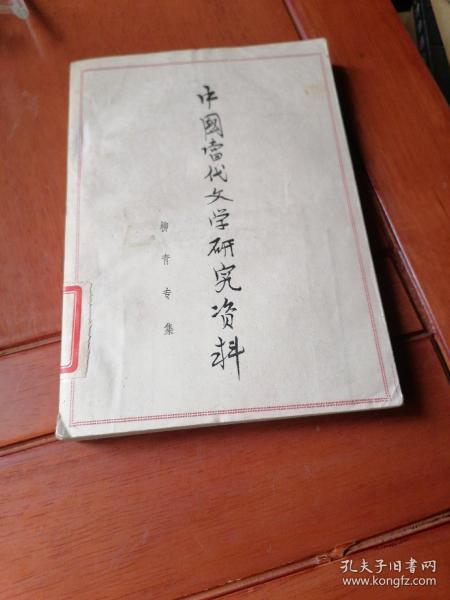 中國當代文学研究资料
柳青专集
孔夫子旧书网
www.kongfz.com